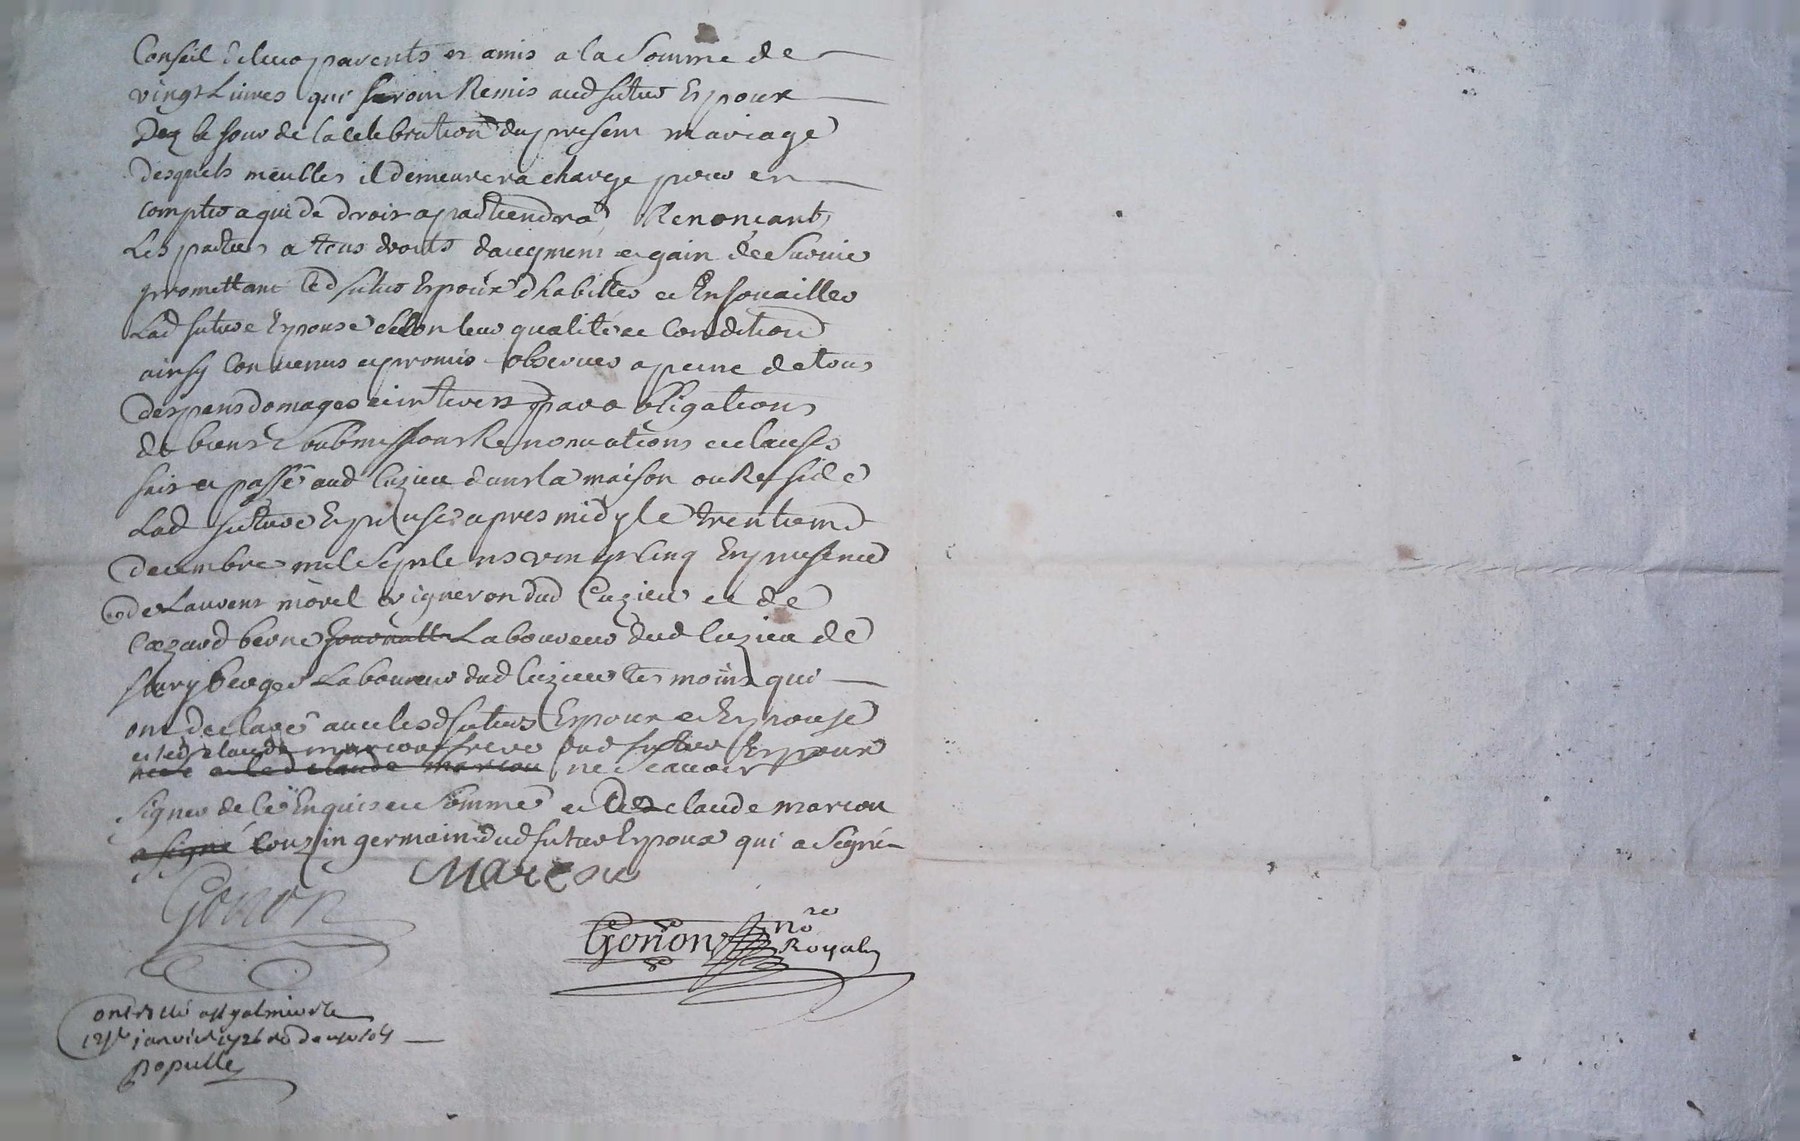 Conseil de leurs parents et amis a la Somme de
vingt Livres qui seront Remis aud futur Epoux
Dez le Jour de la celebration du present mariage
desquels meubles il demeurera charge pour en
compter a qui de droit apartiendra Renonçants
Les parties a tous droits daugment et gain de Survie
promettant led futur Epoux d habilles et Enjouailler
Lad future Epouse selon leur qualité et Condition
ainsy Convenus et promis observer a peine de tous
despens domages et interest par obligations
de biens submissions Renonciations et clauses
fait et passé aud Cuzieu dans la maison ou Reside
Lad future Epouse apres midy le trentieme
decembre mil sept cens vingt Cinq En presence
de Laurent morel vigneron dud Cuzieu et de
Cæzard berne journallier Laboureur dud Cuzieu de
fleury berger Laboureur dud Cuzieu tesmoins qui
ont declaré avec lesd futurs Epoux et Epouse
et led claude marcou frere dud futur Epoux
et led claude marcou ne scavoir
signer de ce Enquis et Sommé et led claude marcou
a signé Couzin germain dud futur Epoux qui a Signé
Marcou
Gonon
Gonon nore
Royal
Controllé a st galmier le
janvier 1726
populle